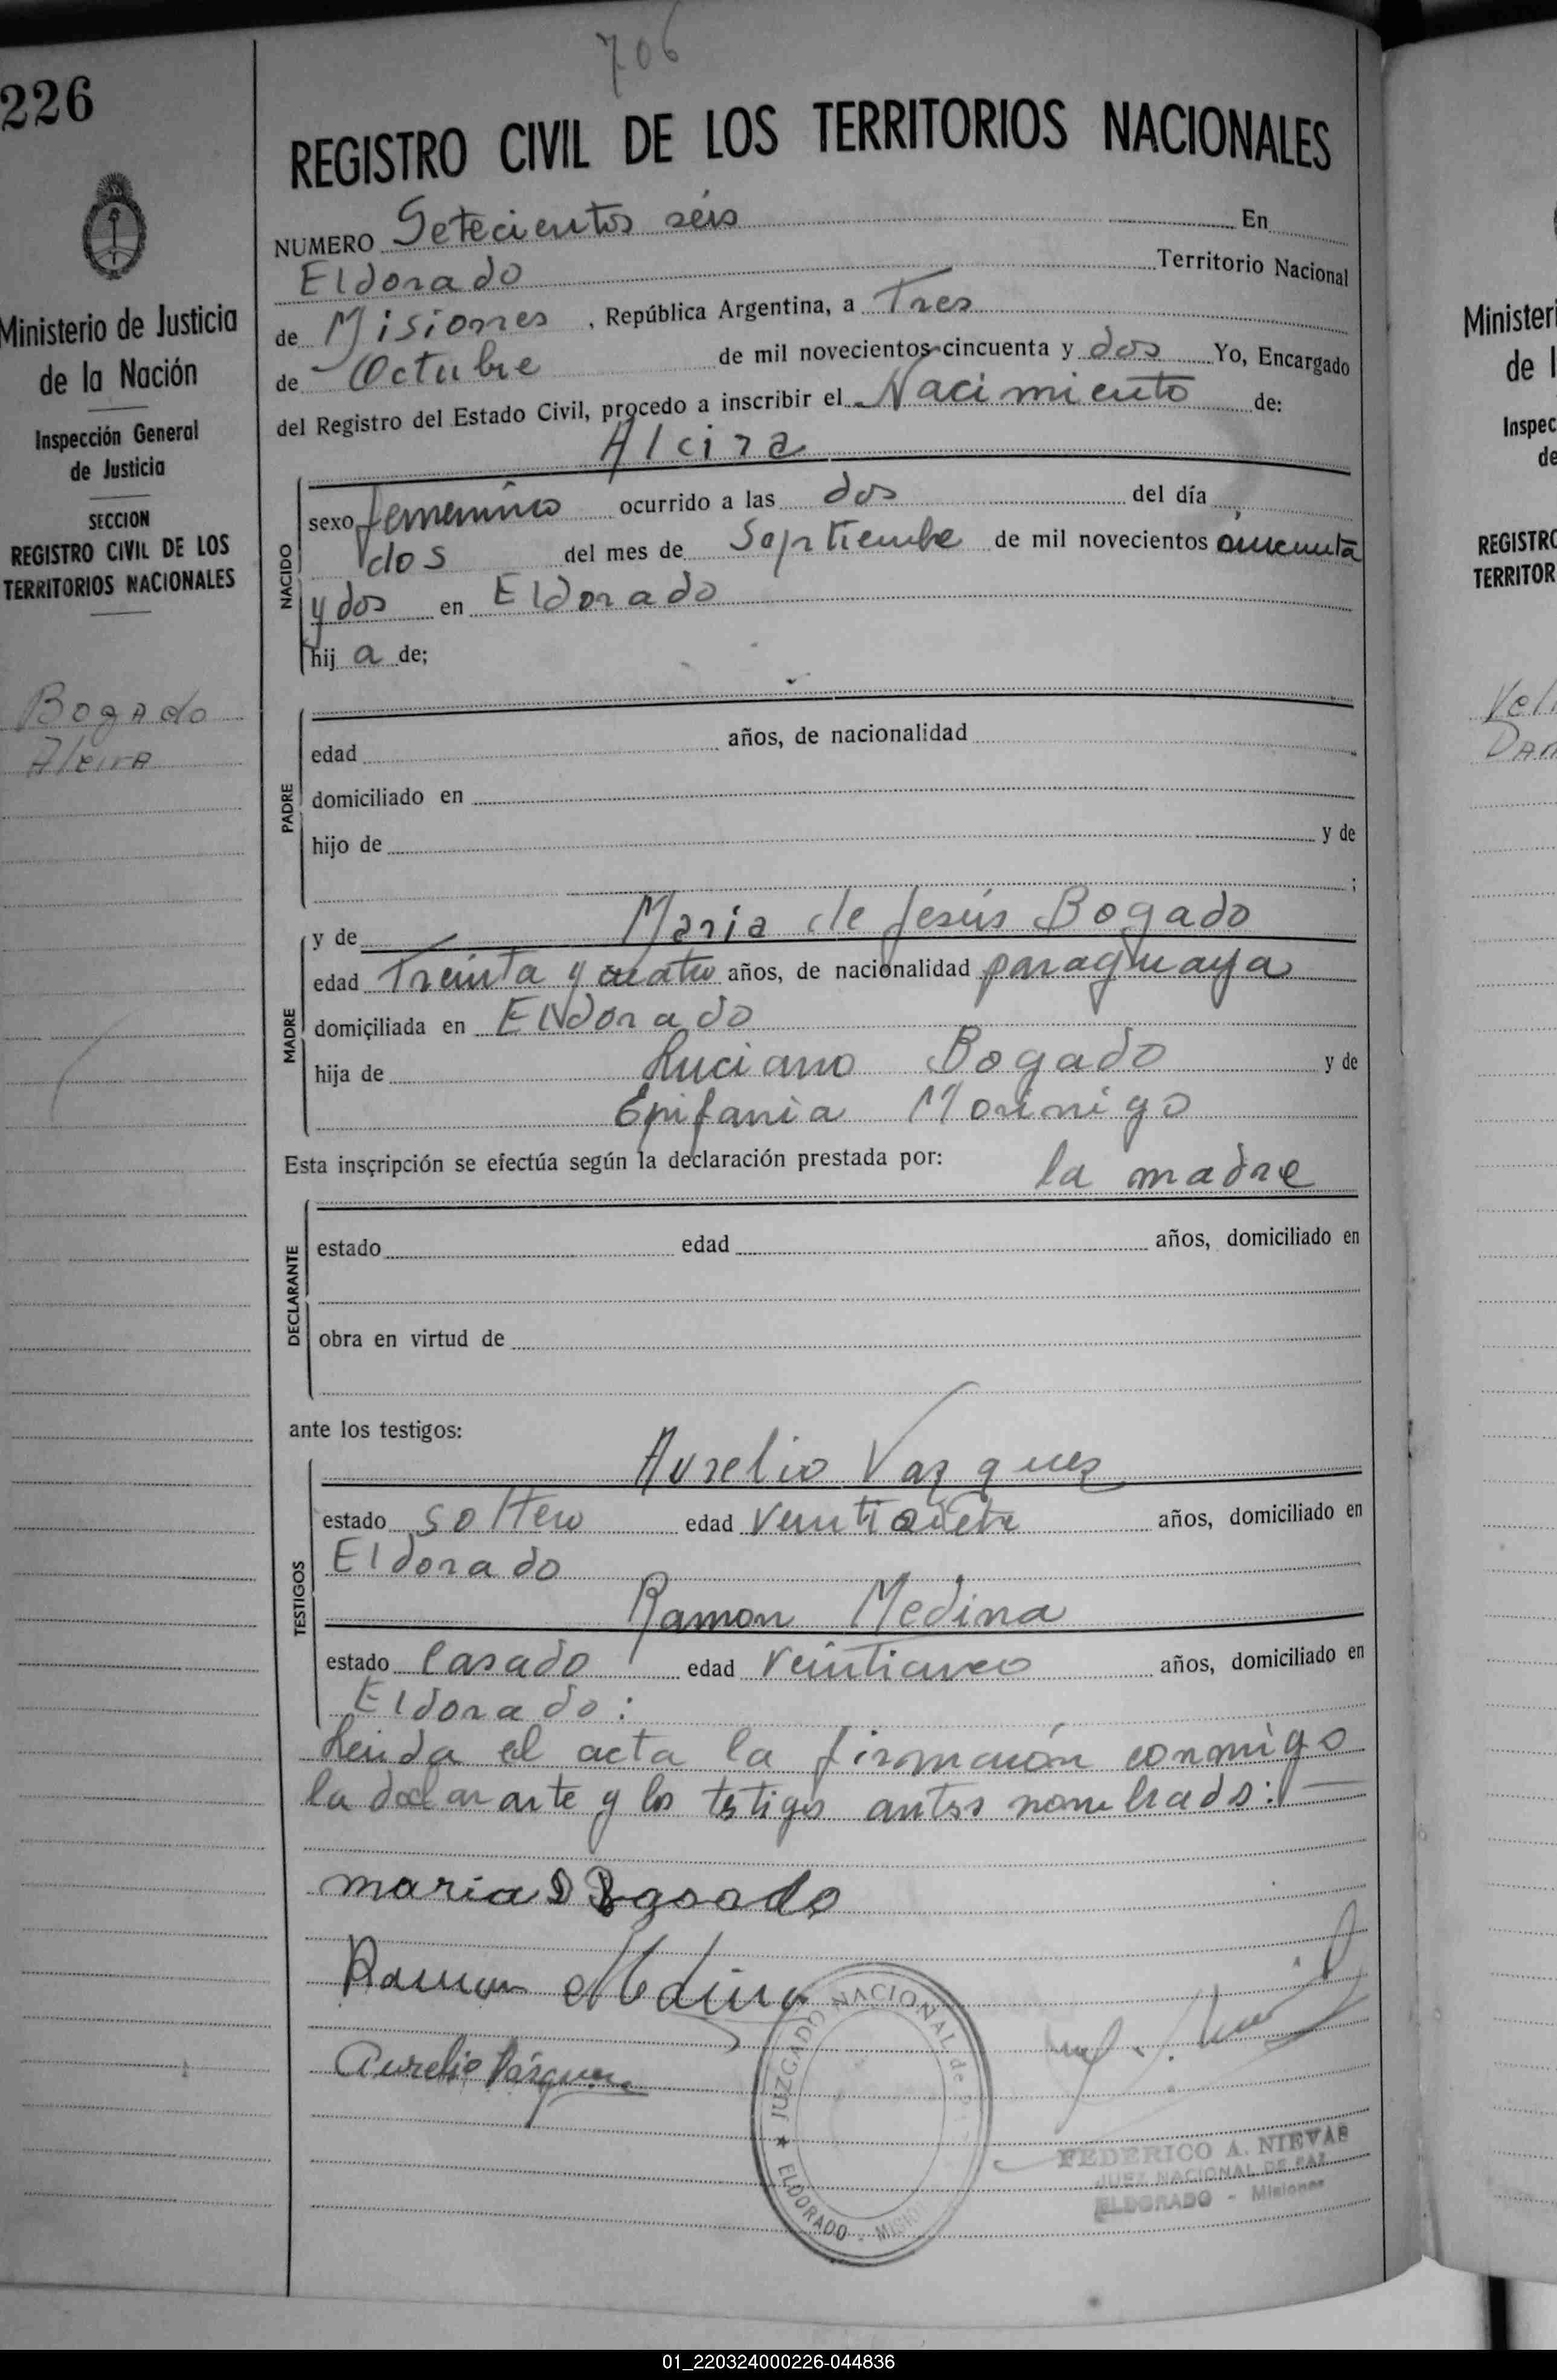 706
226
REGISTRO CIVIL DE LOS TERRITORIOS NACIONALES
NUMERO Setecientos séis En
Eldorado Territorio Nacional
de Misiones, República Argentina, a Tres
de Octubre de mil novecientos cincuenta y dos Yo, Encargado
del Registro del Estado Civil, procedo a inscribir el Nacimiento de:
Alcira
NACIDO
sexo femenino ocurrido a las dos del día
dos del mes de Septiembre de mil novecientos cincuenta
y dos en Eldorado
hij a de;
PADRE
edad años, de nacionalidad
domiciliado en
hijo de y de
;
MADRE
y de Maria de Jesús Bogado
edad Treinta y cuatro años, de nacionalidad paraguaya
domiciliada en Eldorado
hija de Luciano Bogado y de
Epifania Morinigo
Esta inscripción se efectúa según la declaración prestada por:
la madre
DECLARANTE
estado edad años, domiciliado en
obra en virtud de
ante los testigos:
TESTIGOS
Aurelio Vazquez
estado soltero edad veintisiete años, domiciliado en
Eldorado
Ramon Medina
estado Casado edad veinticinco años, domiciliado en
Eldorado:
Leida el acta la firmarón conmigo
la declarante y los testigos antes nombrado:
maria Bgoado
Ramon Medina
Aurelio Vásquez
JUZGADO NACIONAL de
ELDORADO - MISIONES
FEDERICO A. NIEVAS
JUEZ NACIONAL DE PAZ
ELDORADO - Misiones
Ministerio de Justicia
de la Nación
Inspección General
de Justicia
SECCION
REGISTRO CIVIL DE LOS
TERRITORIOS NACIONALES
Bogado
Alcira
Minister
de l
Inspec
de
REGISTRO
TERRITOR
01_220324000226-044836